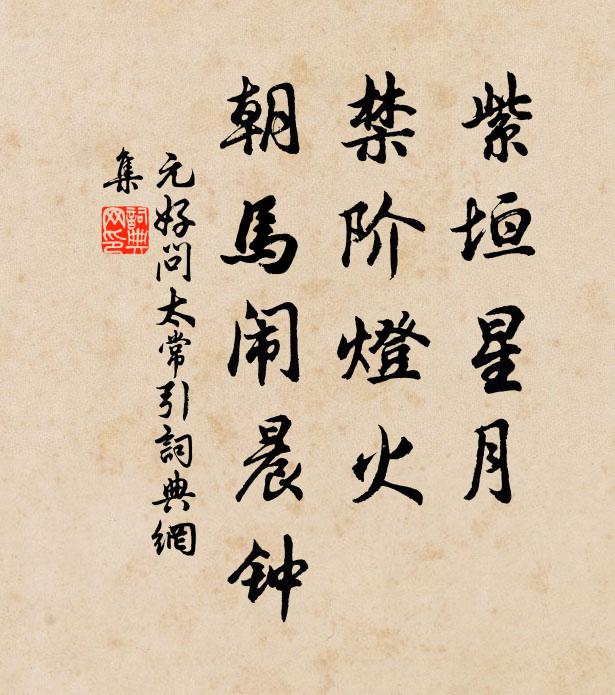 紫垣星月
禁阶燈火
朝馬闹晨钟
元好问太常引詞典網
集
詞典網印